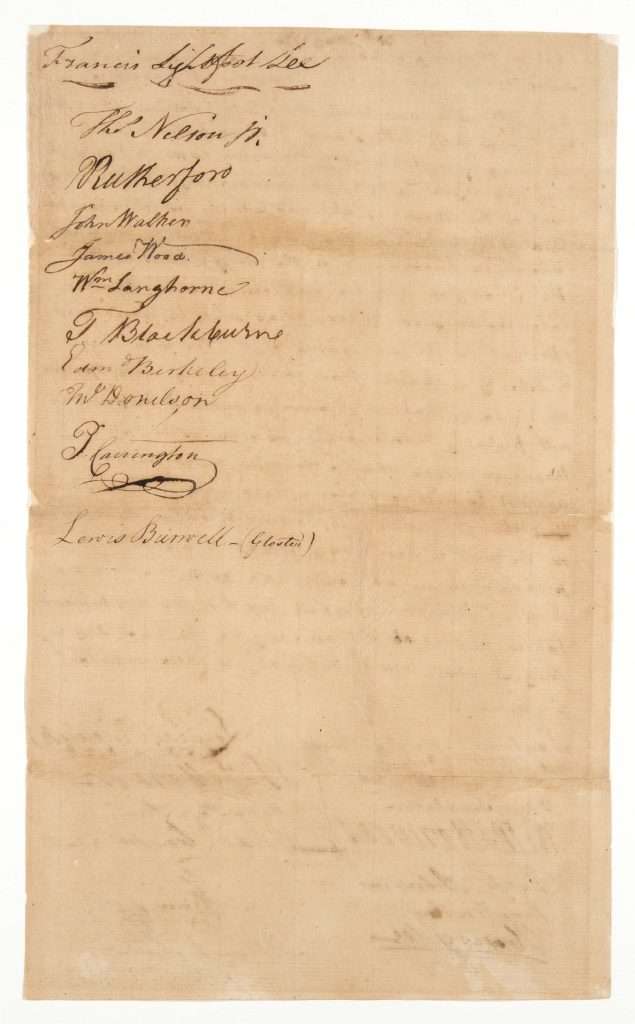 Francis Lightfoot Lee
Thos Nelson jr.
Rutherford
John Walker
James Wood.
Wm Langhorne
T Blackburne
Edmd Berkeley
Donelson
P Carrington
Lewis Burwell - (Gloster)